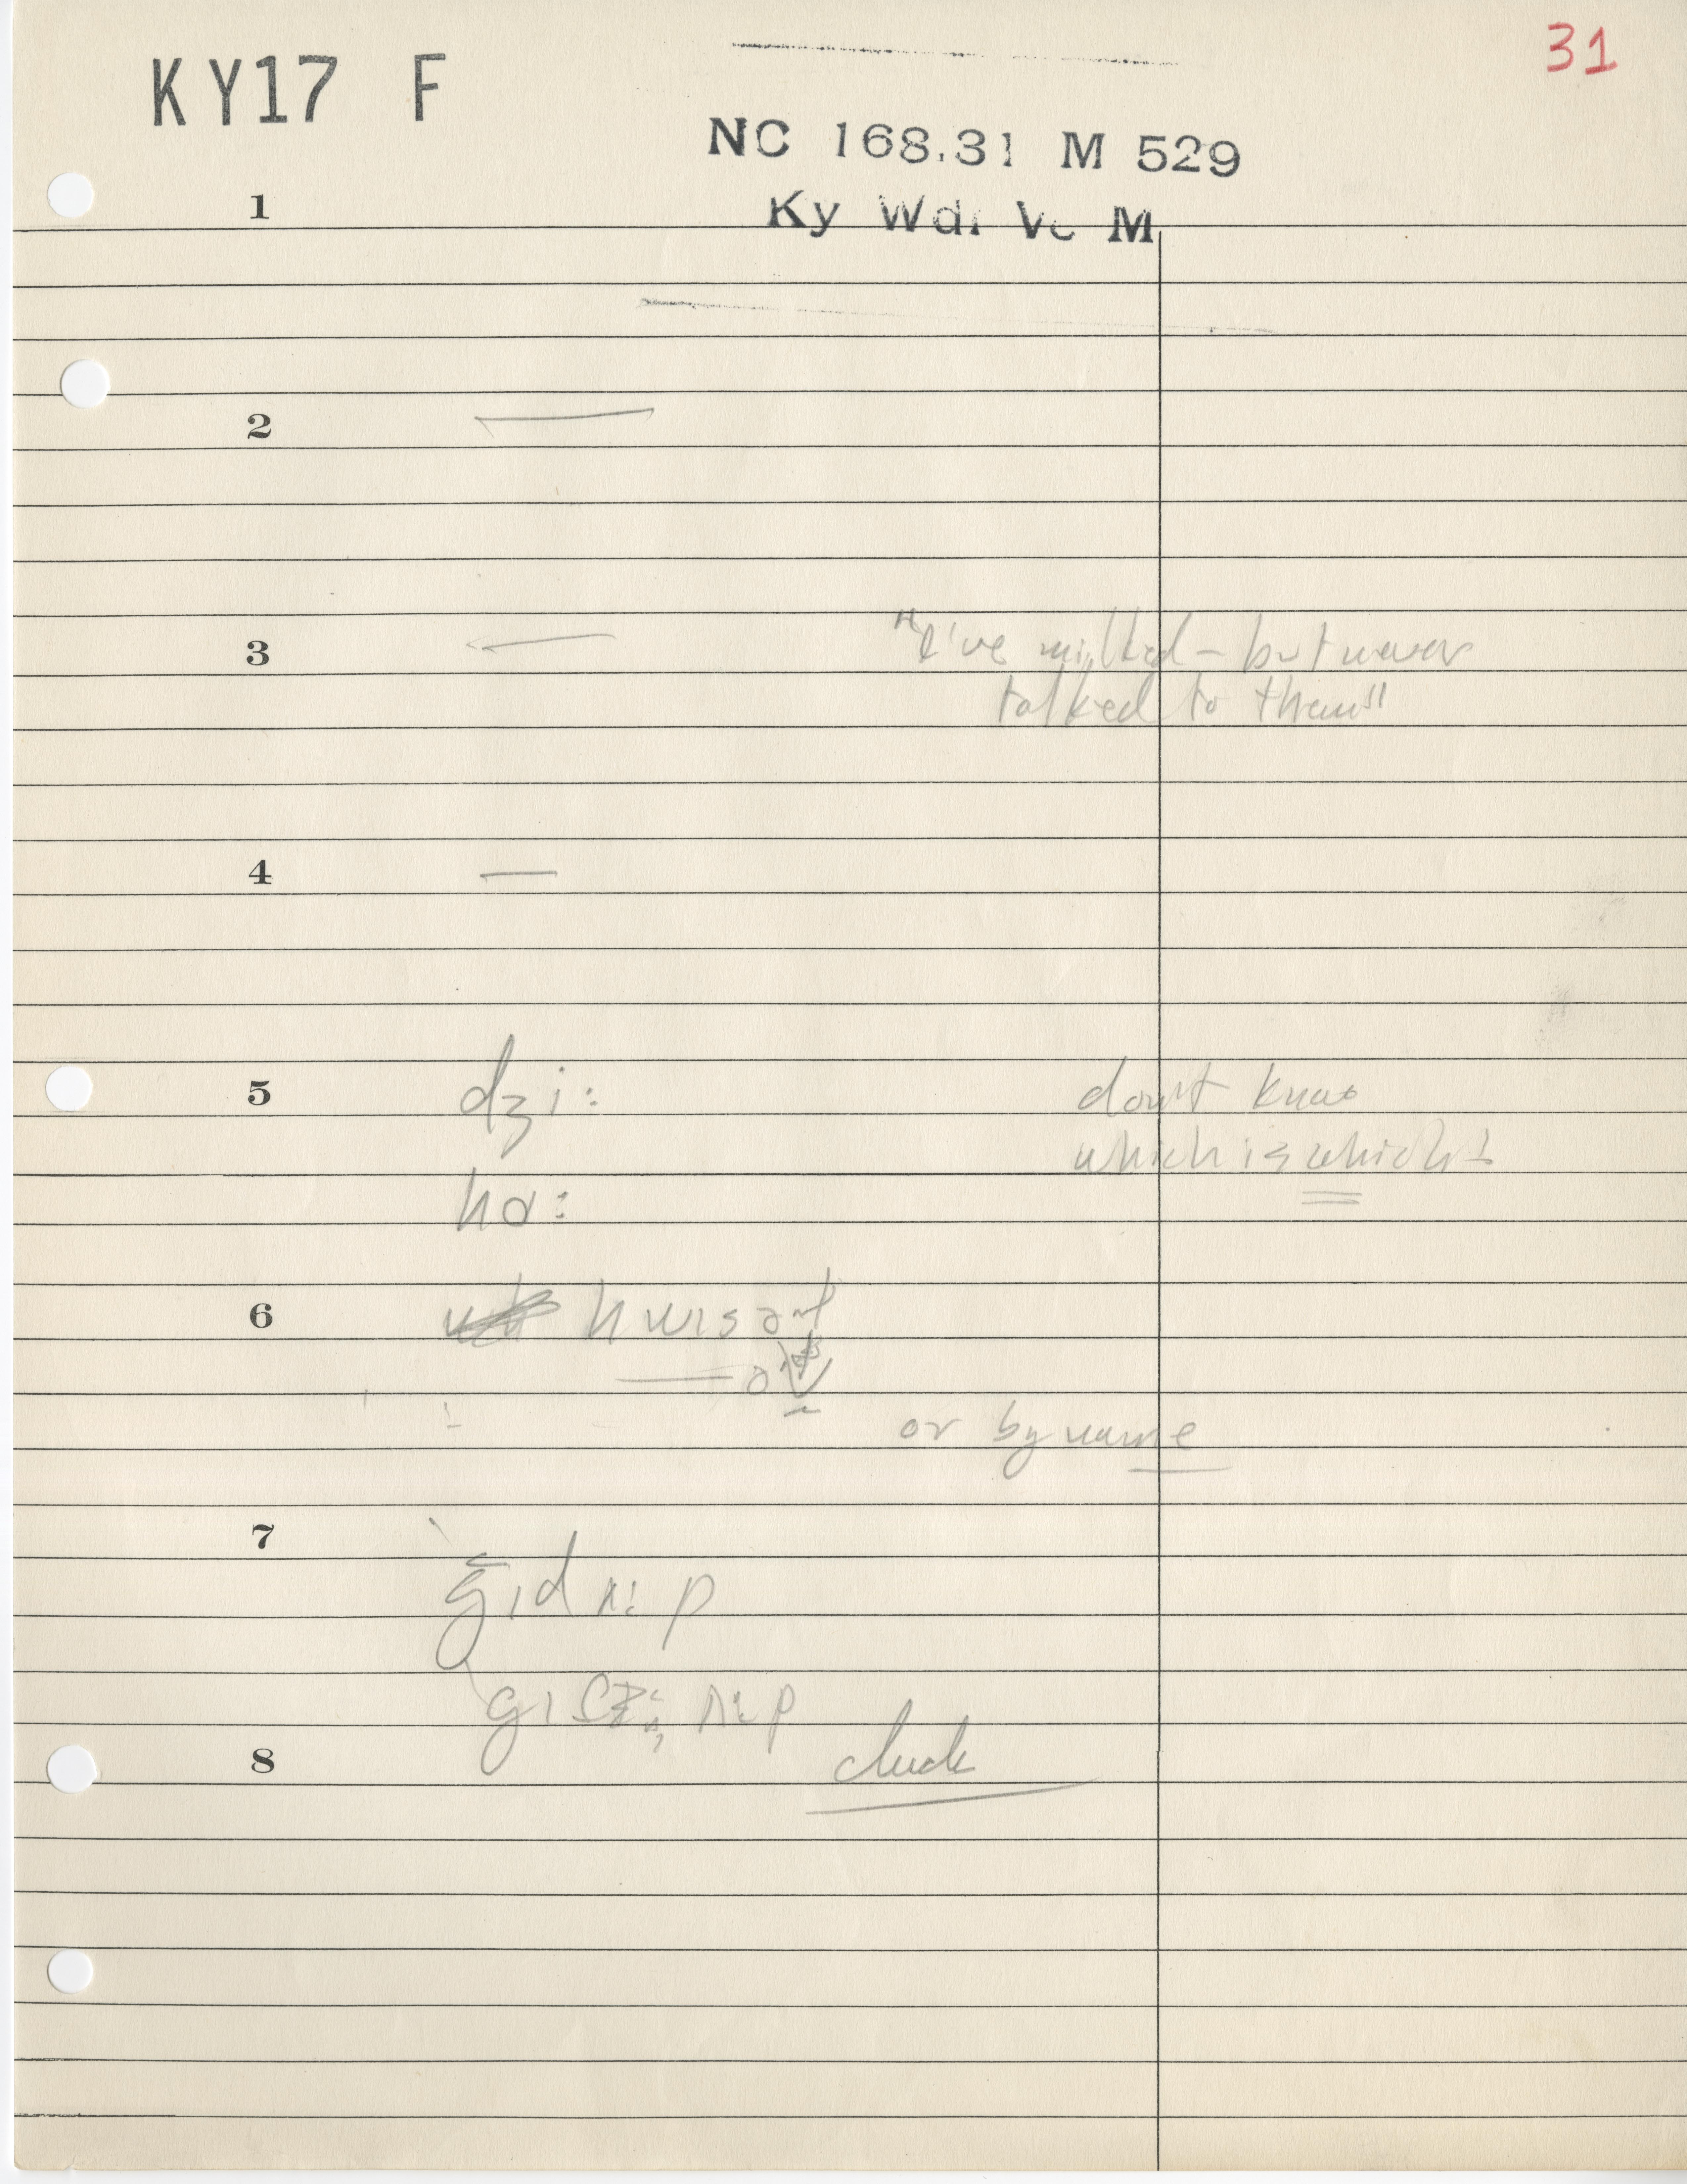 KY17 F
31
NC 168.31 M 529
Ky Wdf Ve M
1
2
3 "I've milked – but never
talked to them"
4
5 dzi: don't know
which is which!
ha:
6
or by name
7
gıdʌ:p
8 cluck